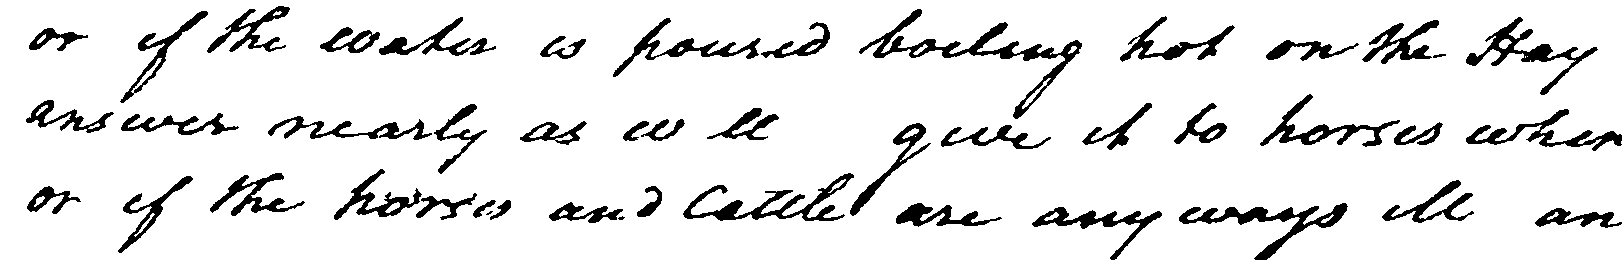 or if the water is poured boiling hot on the Hay
answer nearly as well give it to horses when
or if the horses and Cattle are any ways ill an